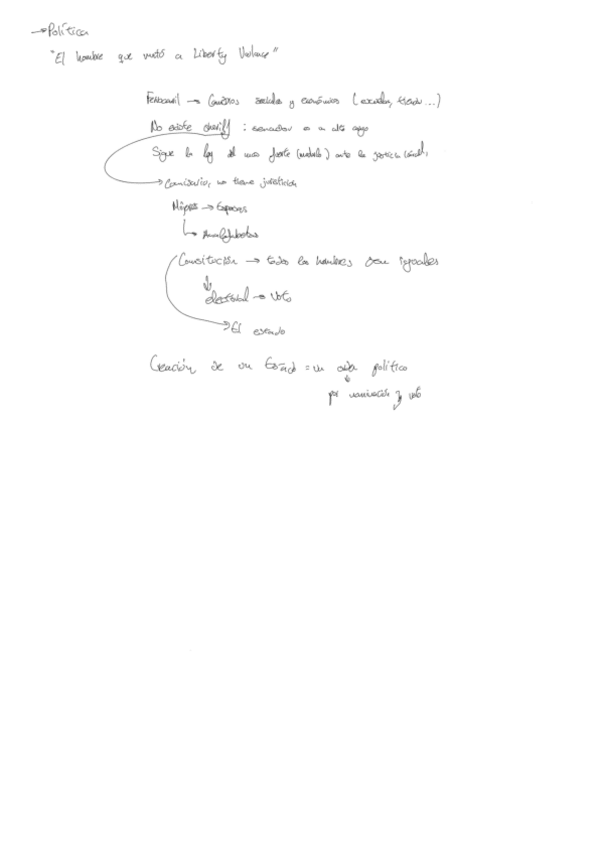 → Política
"El hombre que mató a Liberty Valance"
Ferrocarril → Cambios sociales y económicos (escuelas, tienda...)
No existe sheriff :
Sigue la ley del más fuerte ante la justicia
→ Comisario, no tiene jurisdicción
Mujeres → Esposas
↳ Analfabetas
Constitución → todos los hombres son iguales
electoral → Voto
→ El estado
Creación de un Estado = un político
por y voto